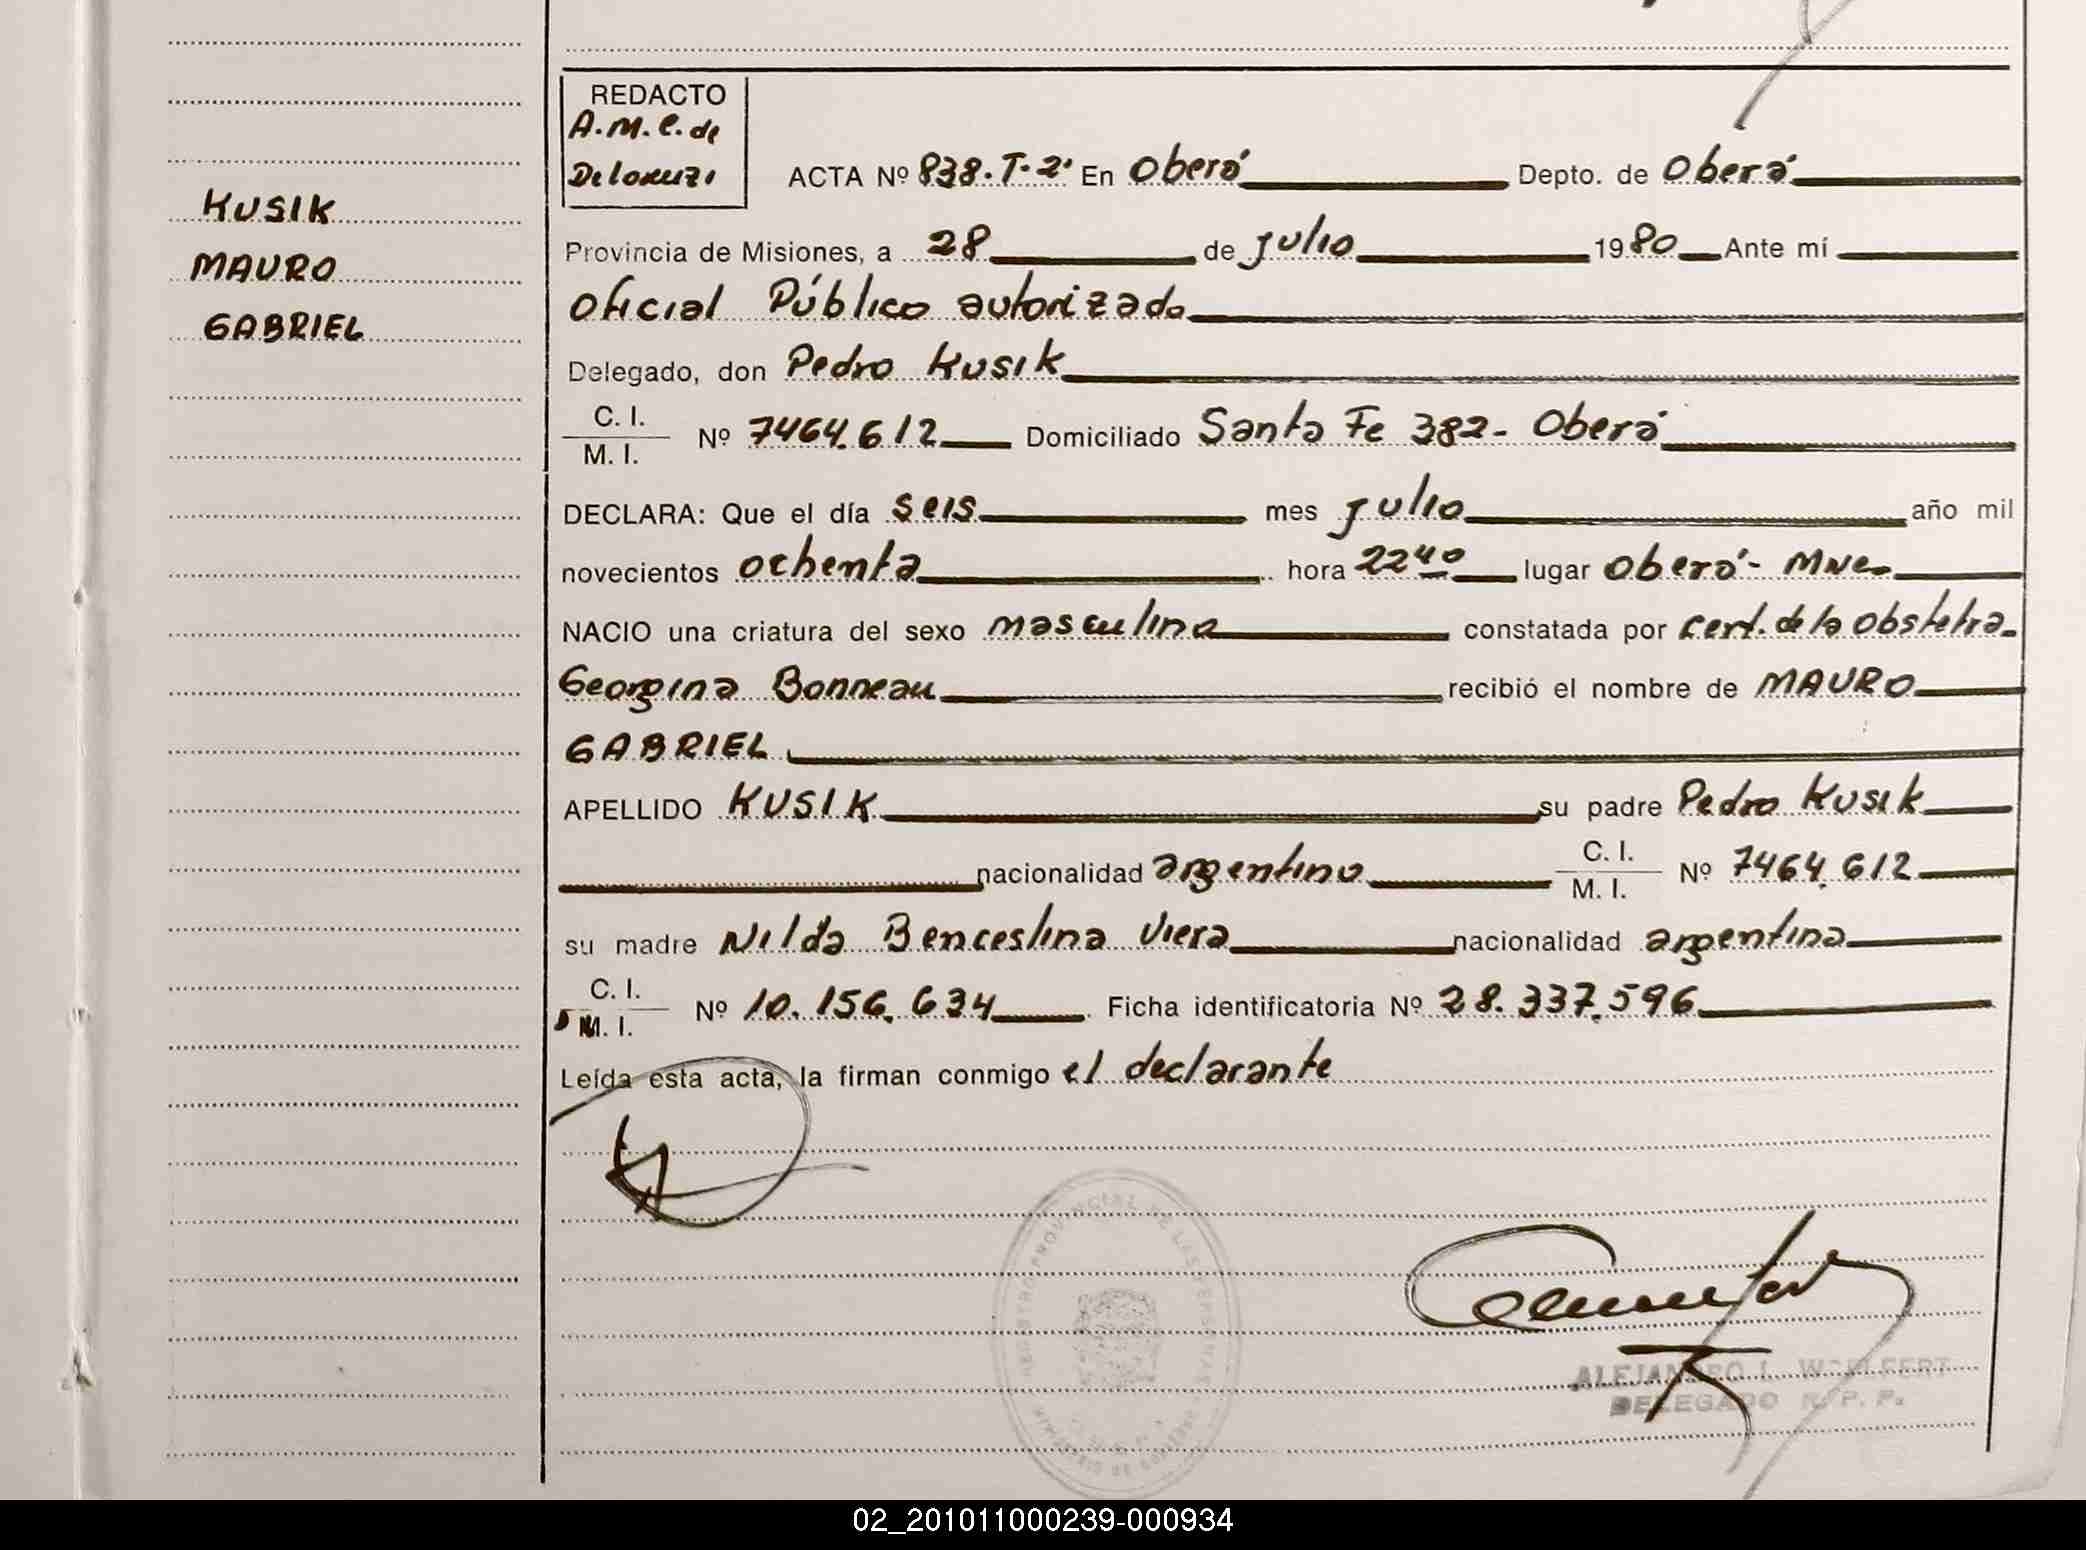 REDACTO
A.M.C. de
Delorenzi
ACTA Nº 838.T-2º En Oberá Depto. de Oberá
KUSIK
MAURO
GABRIEL
Provincia de Misiones, a 28 de julio 1980 Ante mí
Oficial Público autorizado
Delegado, don Pedro Kusik
C. I.
M. I. Nº 7464.612 Domiciliado Santa Fe 382- Oberá
DECLARA: Que el día seis mes julio año mil
novecientos ochenta hora 22⁴⁰ lugar Oberá- Mnes
NACIO una criatura del sexo masculino constatada por cert. de la obstetra
Georgina Bonneau recibió el nombre de MAURO
GABRIEL
APELLIDO KUSIK su padre Pedro Kusik
nacionalidad argentino C. I.
M. I. Nº 7464.612
su madre Nilda Benceslina Viera nacionalidad argentina
C. I.
M. I. Nº 10.156.634 Ficha identificatoria Nº 28.337.596
Leída esta acta, la firman conmigo el declarante
REGISTRO PROVINCIAL DE LAS PERSONAS
ALEJANDRO L. WOLFFERT
DELEGADO R. P. P.
02_201011000239-000934